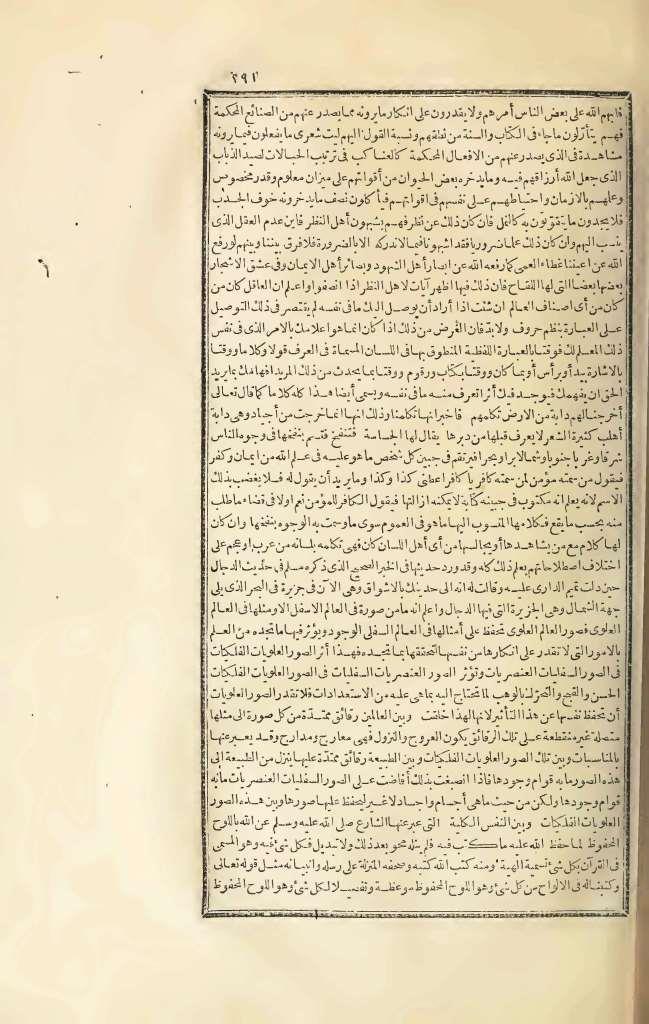 ٢٩١
فابهم الله على بعض الناس أمرهم ولا يقدرون على انكار ما يرونه مما يصدر عنهم من الصنائع المحكمة
فهم يتأولون ما جاء فى الكتاب والسنة من نطقهم ونسبة القول اليهم ليت شعرى ما يفعلون فيما يرونه
مشاهدة فى الذى يصدر عنهم من الافعال المحكمة كالعناكب فى ترتيب الحبالات لصيد الذباب
الذى جعل الله أرزاقهم فيه وما يدخره بعض الحيوان من أقواتهم على ميزان معلوم وقدر مخصوص
وعلمهم بالازمان واحتياطهم على نفسهم فى اقواتهم فيأكلون نصف ما يدخرونه خوف الجدب
فلا يجدون ما يتقوتون به كالنمل فان كان ذلك عن نظر فهم يشبهون أهل النظر فاين عدم العقل الذى
ينسب اليهم وان كان ذلك علما ضروريا فقد اشبهونا فيما لاندركه الا بالضرورة فلا فرق بيننا وبينهم لو رفع
الله عن اعيننا غطاء العمى كما رفعه الله عن ابصار أهل الشهود وبصائر أهل الايمان وفى عشق الاشجار
بعضها بعضا التى لها اللقاح فان ذلك فيها اظهر آيات لاهل النظر اذا انصفوا واعلم ان العاقل كان من
كان من أى اصناف العالم ان شئت اذا أراد أن يوصل اليك ما فى نفسه لم يقتصر فى ذلك التوصيل
على العبارة بنظم حروف ولا بد فان الغرض من ذلك اذا كان انما هو اعلامك بالامر الذى فى نفس
ذلك المعلم لك فوقتا بالعبارة اللفظية المنطوق بها فى اللسان المسماة فى العرف قولا وكلاما ووقتا
بالاشارة بيد أو برأس أو بما كان ووقتا بكتاب ورقوم ووقتا بما يحدث من ذلك المريد افهامك بما يريد
الحق ان يفهمك فيوجد فيك أثرا تعرف منه ما فى نفسه ويسمى أيضا هذا كله كلاما كما قال تعالى
أخرجنا لهم دابة من الارض تكلمهم فاخبر انها تكلمنا وذلك انها انما خرجت من أجياد وهى دابة
أهلب كثيرة الشعر لا يعرف قبلها من دبرها يقال لها الجساسة فتنفخ فتسم بنفخها فى وجوه الناس
شرقا وغربا جنوبا وشمالا برا وبحرا فيرتقم فى جبين كل شخص ما هو عليه فى علم الله من ايمان وكفر
فيقول من سمته مؤمن لمن سمته كافر يا كافر اعطنى كذا وكذا وما يريد أن يقول له فلا يغضب بذلك
الاسم لانه يعلم انه مكتوب فى جبينه كتابة لا يمكنه ازالتها فيقول الكافر للمؤمن نعم اولا فى قضاء ما طلب
منه بحسب ما يقع فكلامها المنسوب اليها ما هو فى العموم سوى ما وسمت به الوجوه بنفخها وان كان
لها كلام مع من يشاهدها أو يجالسها من أى أهل اللسان كان فهى تكلمه بلسانه من عرب أو عجم على
اختلاف اصطلاحاتهم يعلم ذلك كله وقد ورد حديثها فى الخبر الصحيح الذى ذكره مسلم فى حديث الدجال
حين دلت تميم الدارى عليه وقالت له انه الى حديثك بالاشواق وهى الآن فى جزيرة فى البحر الذى يلى
جهة الشمال وهى الجزيرة التى فيها الدجال واعلم انه ما من صورة فى العالم الاسفل الا ومثلها فى العالم
العلوى فصور العالم العلوى تحفظ على أمثالها فى العالم السفلى الوجود ويؤثر فيها ما تجده من العلم
بالامور التى لا تقدر على انكارها من نفسها لتحققها بما تجده فهذا أثر الصور العلويات الفلكيات
فى الصور السفليات العنصريات وتؤثر الصور العنصريات السفليات فى الصور العلويات الفلكيات
الحسن والقبح والتحرك بالوهب لما تحتاج اليه بما هى عليه من الاستعدادات فلا تقدر الصور العلويات
أن تحفظ نفسها عن هذا التأثير لانها لهذا خلقت وبين العالمين رقائق ممتدة من كل صورة الى مثلها
متصلة غير منقطعة على تلك الرقائق يكون العروج والنزول فهى معارج ومدارج وقد يعبر عنها
بالمناسبات وبين تلك الصور العلويات الفلكيات وبين الطبيعة رقائق ممتدة عليها ينزل من الطبيعة الى
هذه الصور ما به قوام وجودها فاذا انصبغت بذلك أفاضت على الصور السفليات العنصريات ما به
قوام وجودها ولكن من حيث ما هى أجسام واجساد لا غير ليحفظ عليها صورها وبين هذه الصور
العلويات الفلكيات وبين النفس الكلية التى عبر عنها الشارع صلى الله عليه وسلم عن الله باللوح
المحفوظ لما حفظ الله عليه ما كتب فيه فلم ينله محو بعد ذلك ولا تبديل فكل شئ فيه وهو المسمى
فى القرآن بكل شئ تسمية الهية ومنه كتب الله كتبه وصحفه المنزلة على رسله وانبيائه مثل قوله تعالى
وكتبنا له فى الالواح من كل شئ وهو اللوح المحفوظ موعظة وتفصيلا لكل شئ وهو اللوح المحفوظ